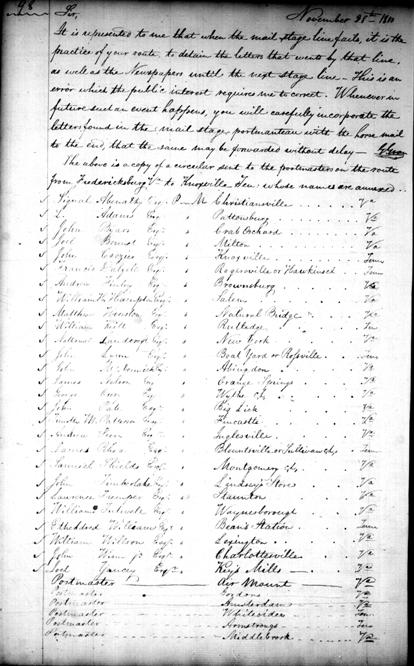 98
Sir, November 28th 1811
It is represented to me that when the mail stage line fails, it is the
practice of your route, to detain the letters that went by that line,
as well as the Newspapers until the next stage line — This is an
error which the public interest requires me to correct. Whenever in
future such an event happens, you will carefully incorporate the
letters found in the mail stage portmanteau with the horse mail
to the end, that the same may be forwarded without delay —
The above is a copy of a circular sent to the postmasters on the route
from Fredericksburg Va to Knoxville Ten: whose names are annexed.
Signal Abernathy Esq. P. M. Christiansville Va
Adams Esq. Pattonsburg Va
John Esq. Crab Orchard Va
Joel Esq. Milton Va
John Crozier Esq. Knoxville Tenn
Francis Dalzell Esq. Rogersville or Hawkinsch Tenn
Andrew Finley Esq. Brownsburg Va
William Hampton Esq. Salem Va
Matthew Houston Esq. Natural Bridge Va
William Esq. Rutledge Ten
Esq. New York Va
John Lynn Esq. Boat Yard or Rossville Tenn
John Esq. Abingdon Va
James Nelson Esq. Orange Springs Va
Esq. Wythe Ch Va
John Tate Esq. Big Lick Va
M. Patterson Esq. Fincastle Va
Andrew Esq. Inglesville Va
James Rhea Esq. Blountsville or Sullivan Ch Tenn
Samuel Shields Esq. Montgomery Ch Va
John Timberlake Esq. Lindsay's Store Va
Lawrence Tremper Esq. Staunton Va
William Esq. Waynesborough Va
Etheldred Williams Esq. Bean's Station Tenn
William Willson Esq. Lexington Va
John Winn Jr. Esq. Charlottesville Va
Joel Yancey Esq. Key's Mills Va
Postmaster Air Mount Va
Postmaster Gordons Va
Postmaster Amsterdam Va
Postmaster Whitesides Ten
Postmaster Armstrongs Ten
Postmaster Middlebrook Va